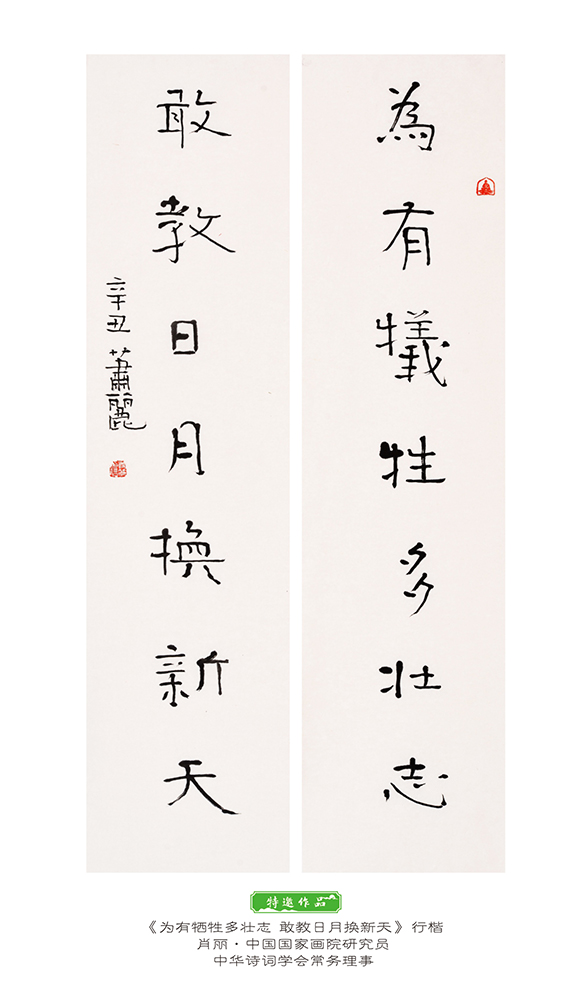 為有犧牲多壯志
敢教日月換新天
辛丑 蕭麗
特邀作品
《为有牺牲多壮志 敢教日月换新天》行楷
肖丽·中国国家画院研究员
中华诗词学会常务理事